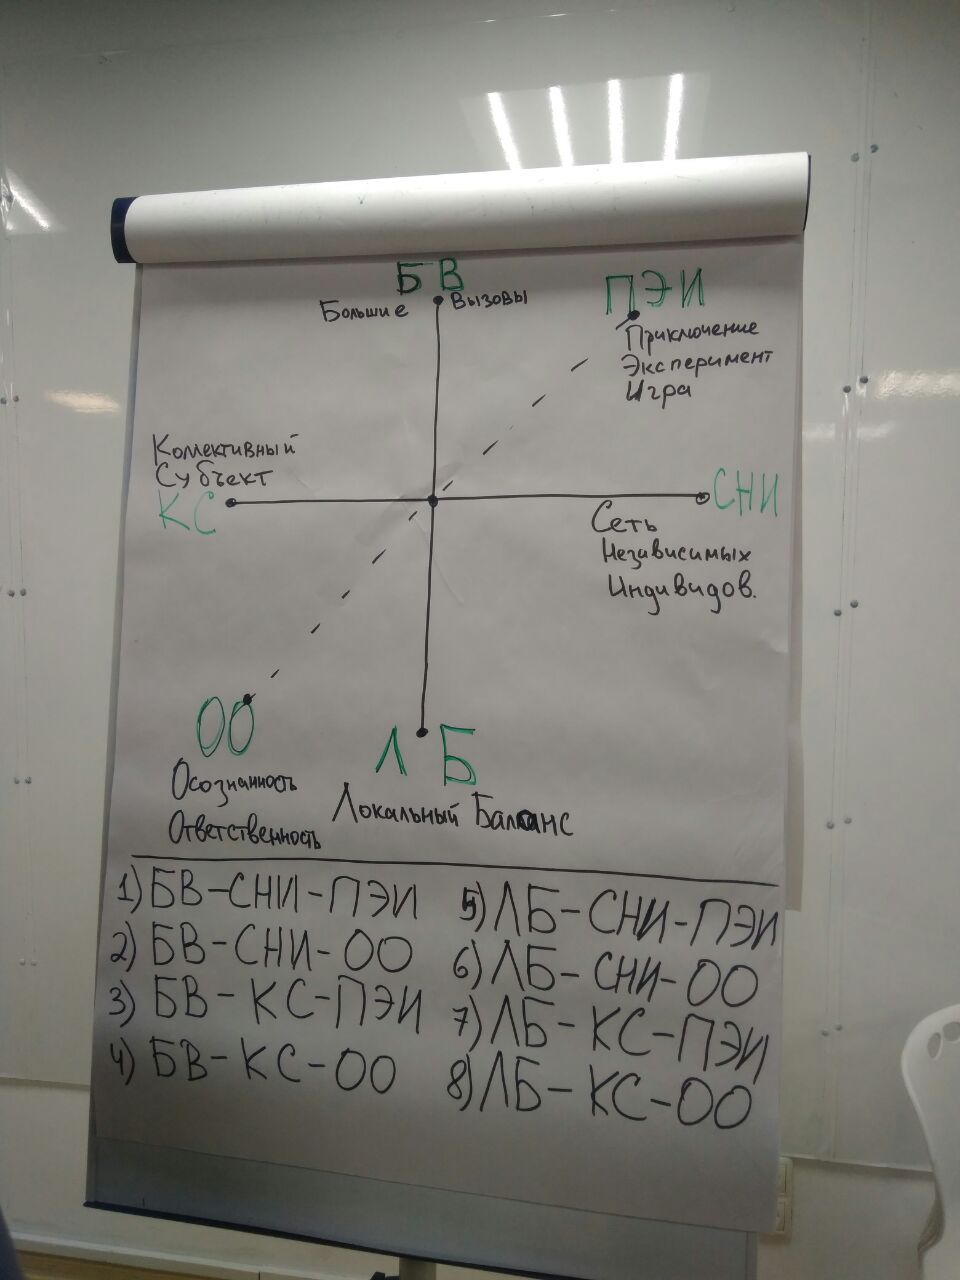 БВ
Большие Вызовы
ПЭИ
Приключение
Эксперимент
Игра
Коллективный
Субъект
КС
СНИ
Сеть
Независимых
Индивидов.
ОО
Осознанность
Ответственность
ЛБ
Локальный Баланс
1) БВ-СНИ-ПЭИ
2) БВ-СНИ-ОО
3) БВ-КС-ПЭИ
4) БВ-КС-ОО
5) ЛБ-СНИ-ПЭИ
6) ЛБ-СНИ-ОО
7) ЛБ-КС-ПЭИ
8) ЛБ-КС-ОО